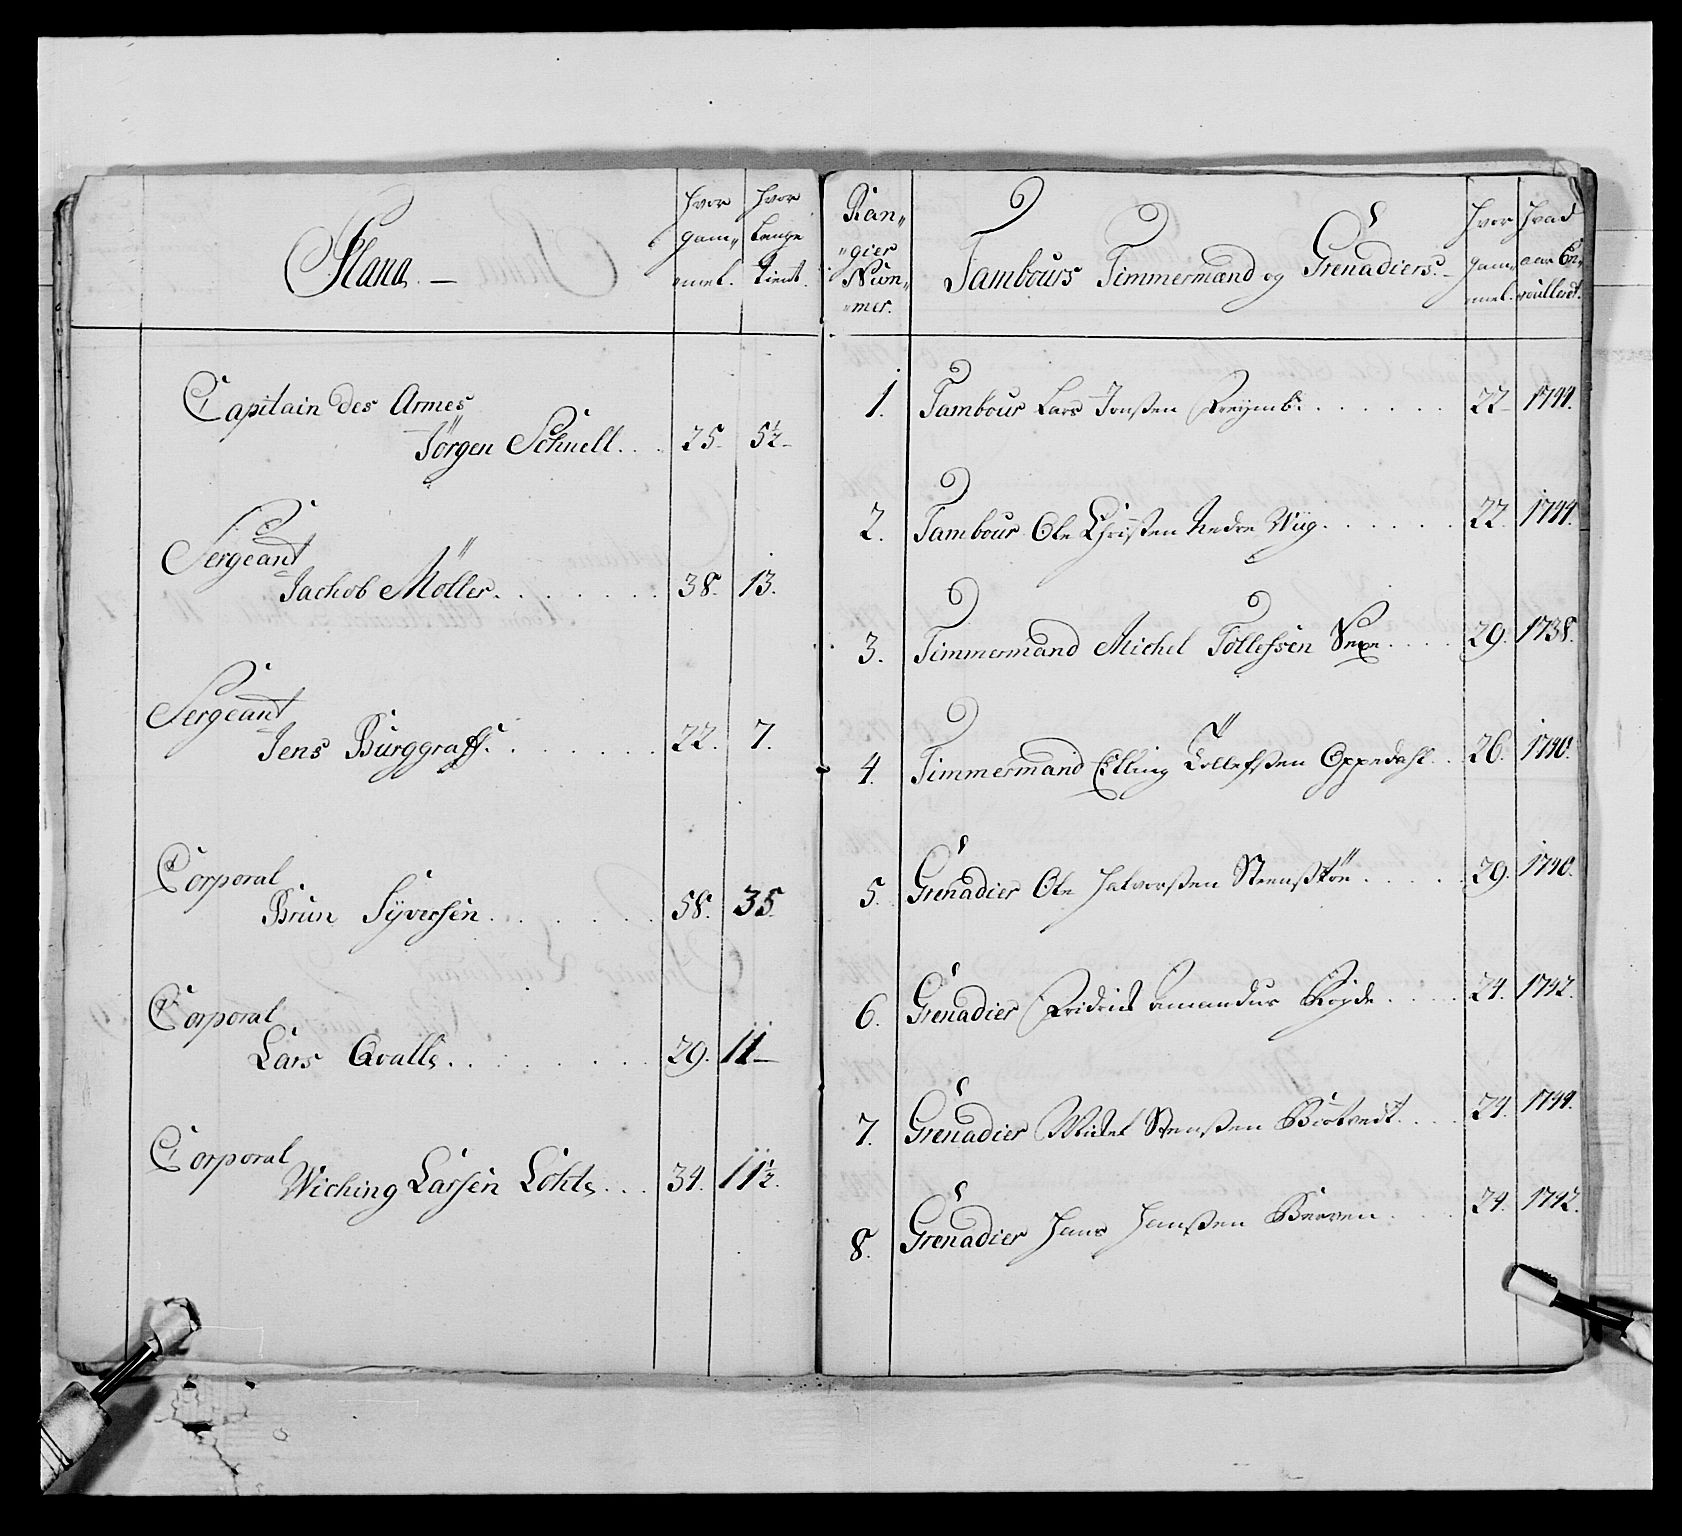 Stana. —
Hvor gam„ „mel.
Hvor Lenge tient.
Capitain des Armes
Jörgen Schnell. . . 25. 5½
Sergeant
Jachob Möller. . . . . . . . 38. 13.
Sergeant
Jens Bürggraff. . . . . . . . 22. 7.
Corporal
Brün Sÿversen. . . . . . . 58. 35.
Corporal
Lars Qvalle. . . . . . . . 29. 11
Corporal
Wiching Larsen Lohte. . . 34. 11½.
Ran„ „gier Num„ „mer.
Tambours Timmermænd og Grenadiers. —
Hvor gam„ „mel.
Hvad aar En„ „roulleret.
1. Tambour Lars Jonßen . . . . . . 22 1744.
2. Tambour Ole Christen Nedre Wiig. . . . . . 22. 1744.
3. Timmermand Michel Tollefsen . . . . 29. 1738.
4. Timmermand Elling Tollefsßen Oppedahl. . 26. 1740.
5. Grenadier Ole Halvorßen . . . . . 29. 1740.
6. Grenadier Fridrich Amandus . . . . 24. 1742.
7. Grenadier Michel Stenßen . . . . 24. 1744.
8. Grenadier Hans Hanßen Berven . . . . 24. 1742.